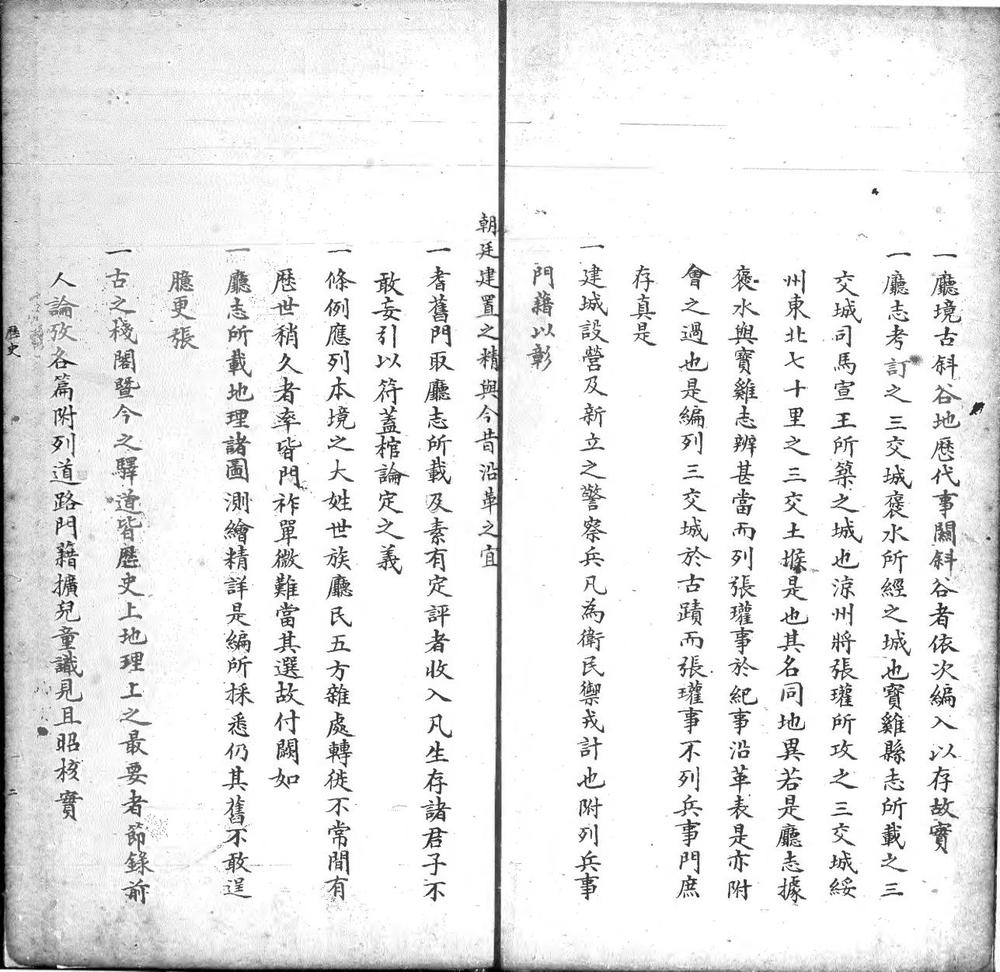 一廳境古斜谷地歷代事關斜谷者依次編入以存故實
一廳志考訂之三交城褒水所經之城也寶雞縣志所載之三
交城司馬宣王所築之城也涼州將張瓘所攻之三交城綏
州東北七十里之三交土堠是也其名同地異若是廳志據
褒水與寶雞志辨甚當而列張瓘事於紀事沿革表是亦附
會之過也是編列三交城於古蹟而張瓘事不列兵事門庶
存真是
一建城設營及新立之警察兵凡為衛民禦戎計也附列兵事
門藉以彰
朝廷建置之精與今昔沿革之宜
一耆舊門取廳志所載及素有定評者收入凡生存諸君子不
敢妄引以符蓋棺論定之義
一條例應列本境之大姓世族廳民五方雜處轉徙不常間有
歷世稍久者率皆門祚單微難當其選故付闕如
一廳志所載地理諸圖測繪精詳是編所採悉仍其舊不敢逞
臆更張
一古之棧閣暨今之驛道皆歷史上地理上之最要者節錄前
人論攷各篇附列道路門藉擴兒童識見且昭核實
歷史
二